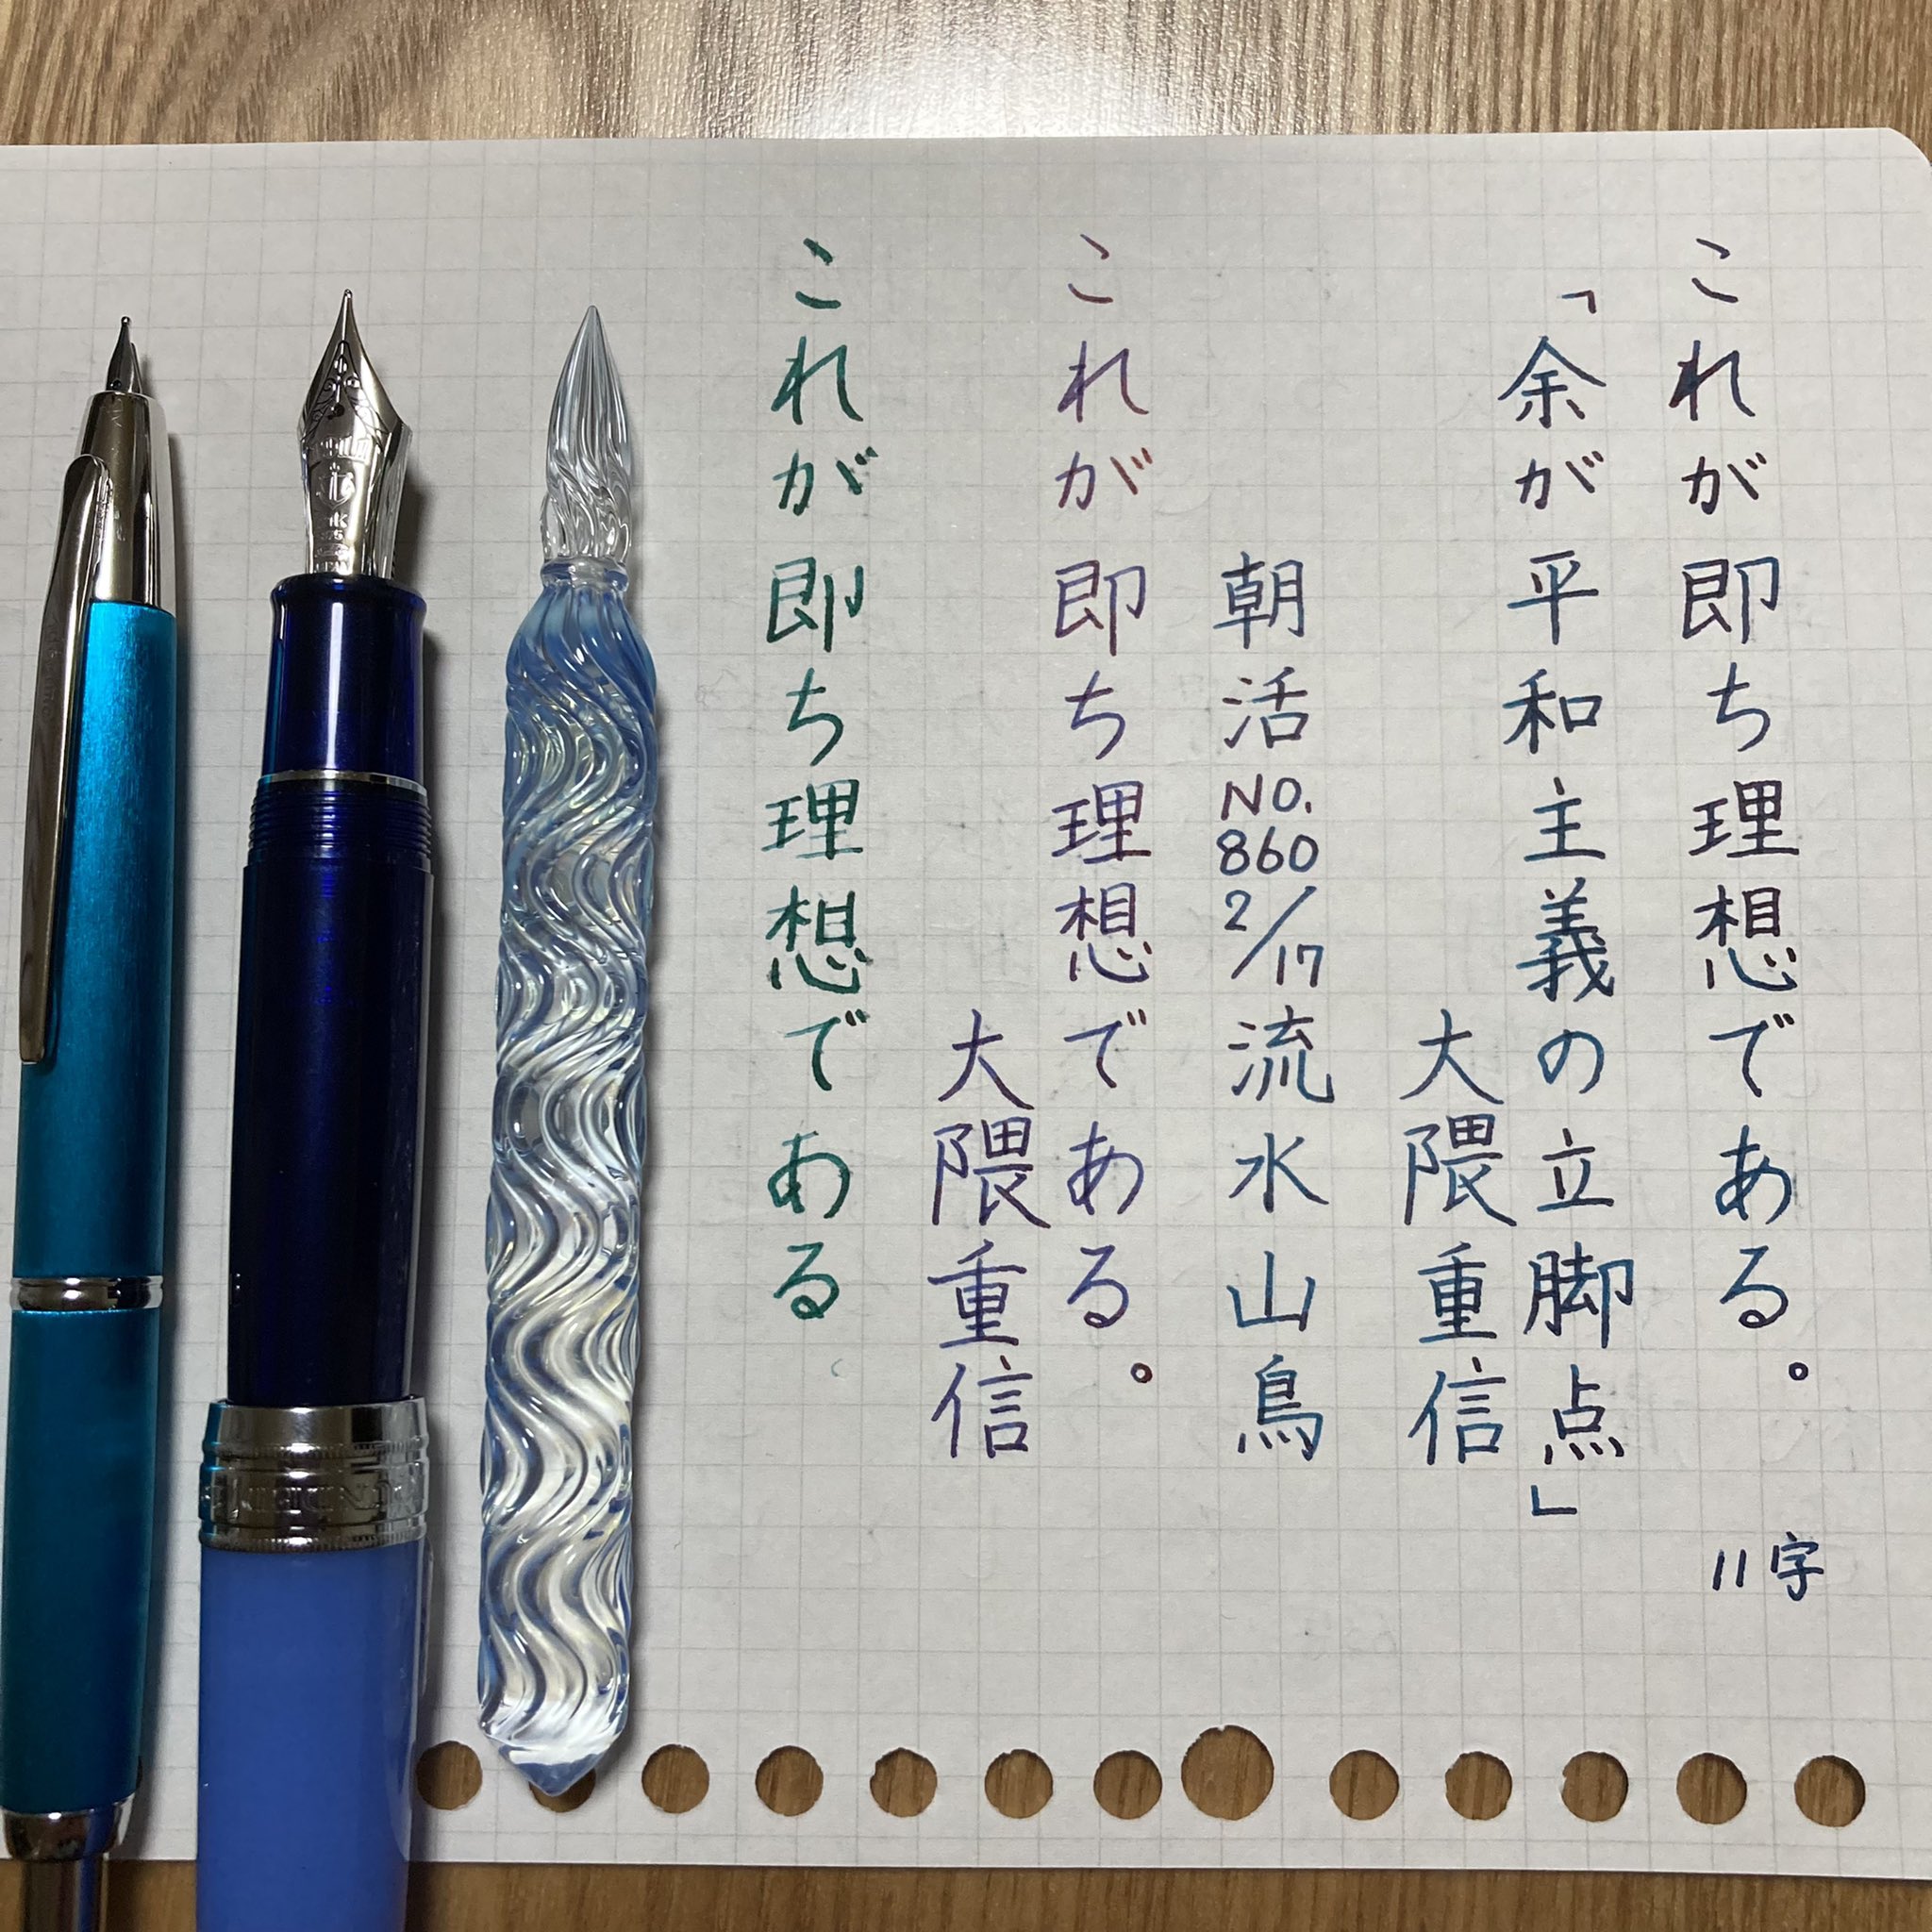 これが即ち理想である。
11字
「余が平和主義の立脚点」
大隈重信
朝活
NO.
860
2/17
流水山鳥
これが即ち理想である。
大隈重信
これが即ち理想である